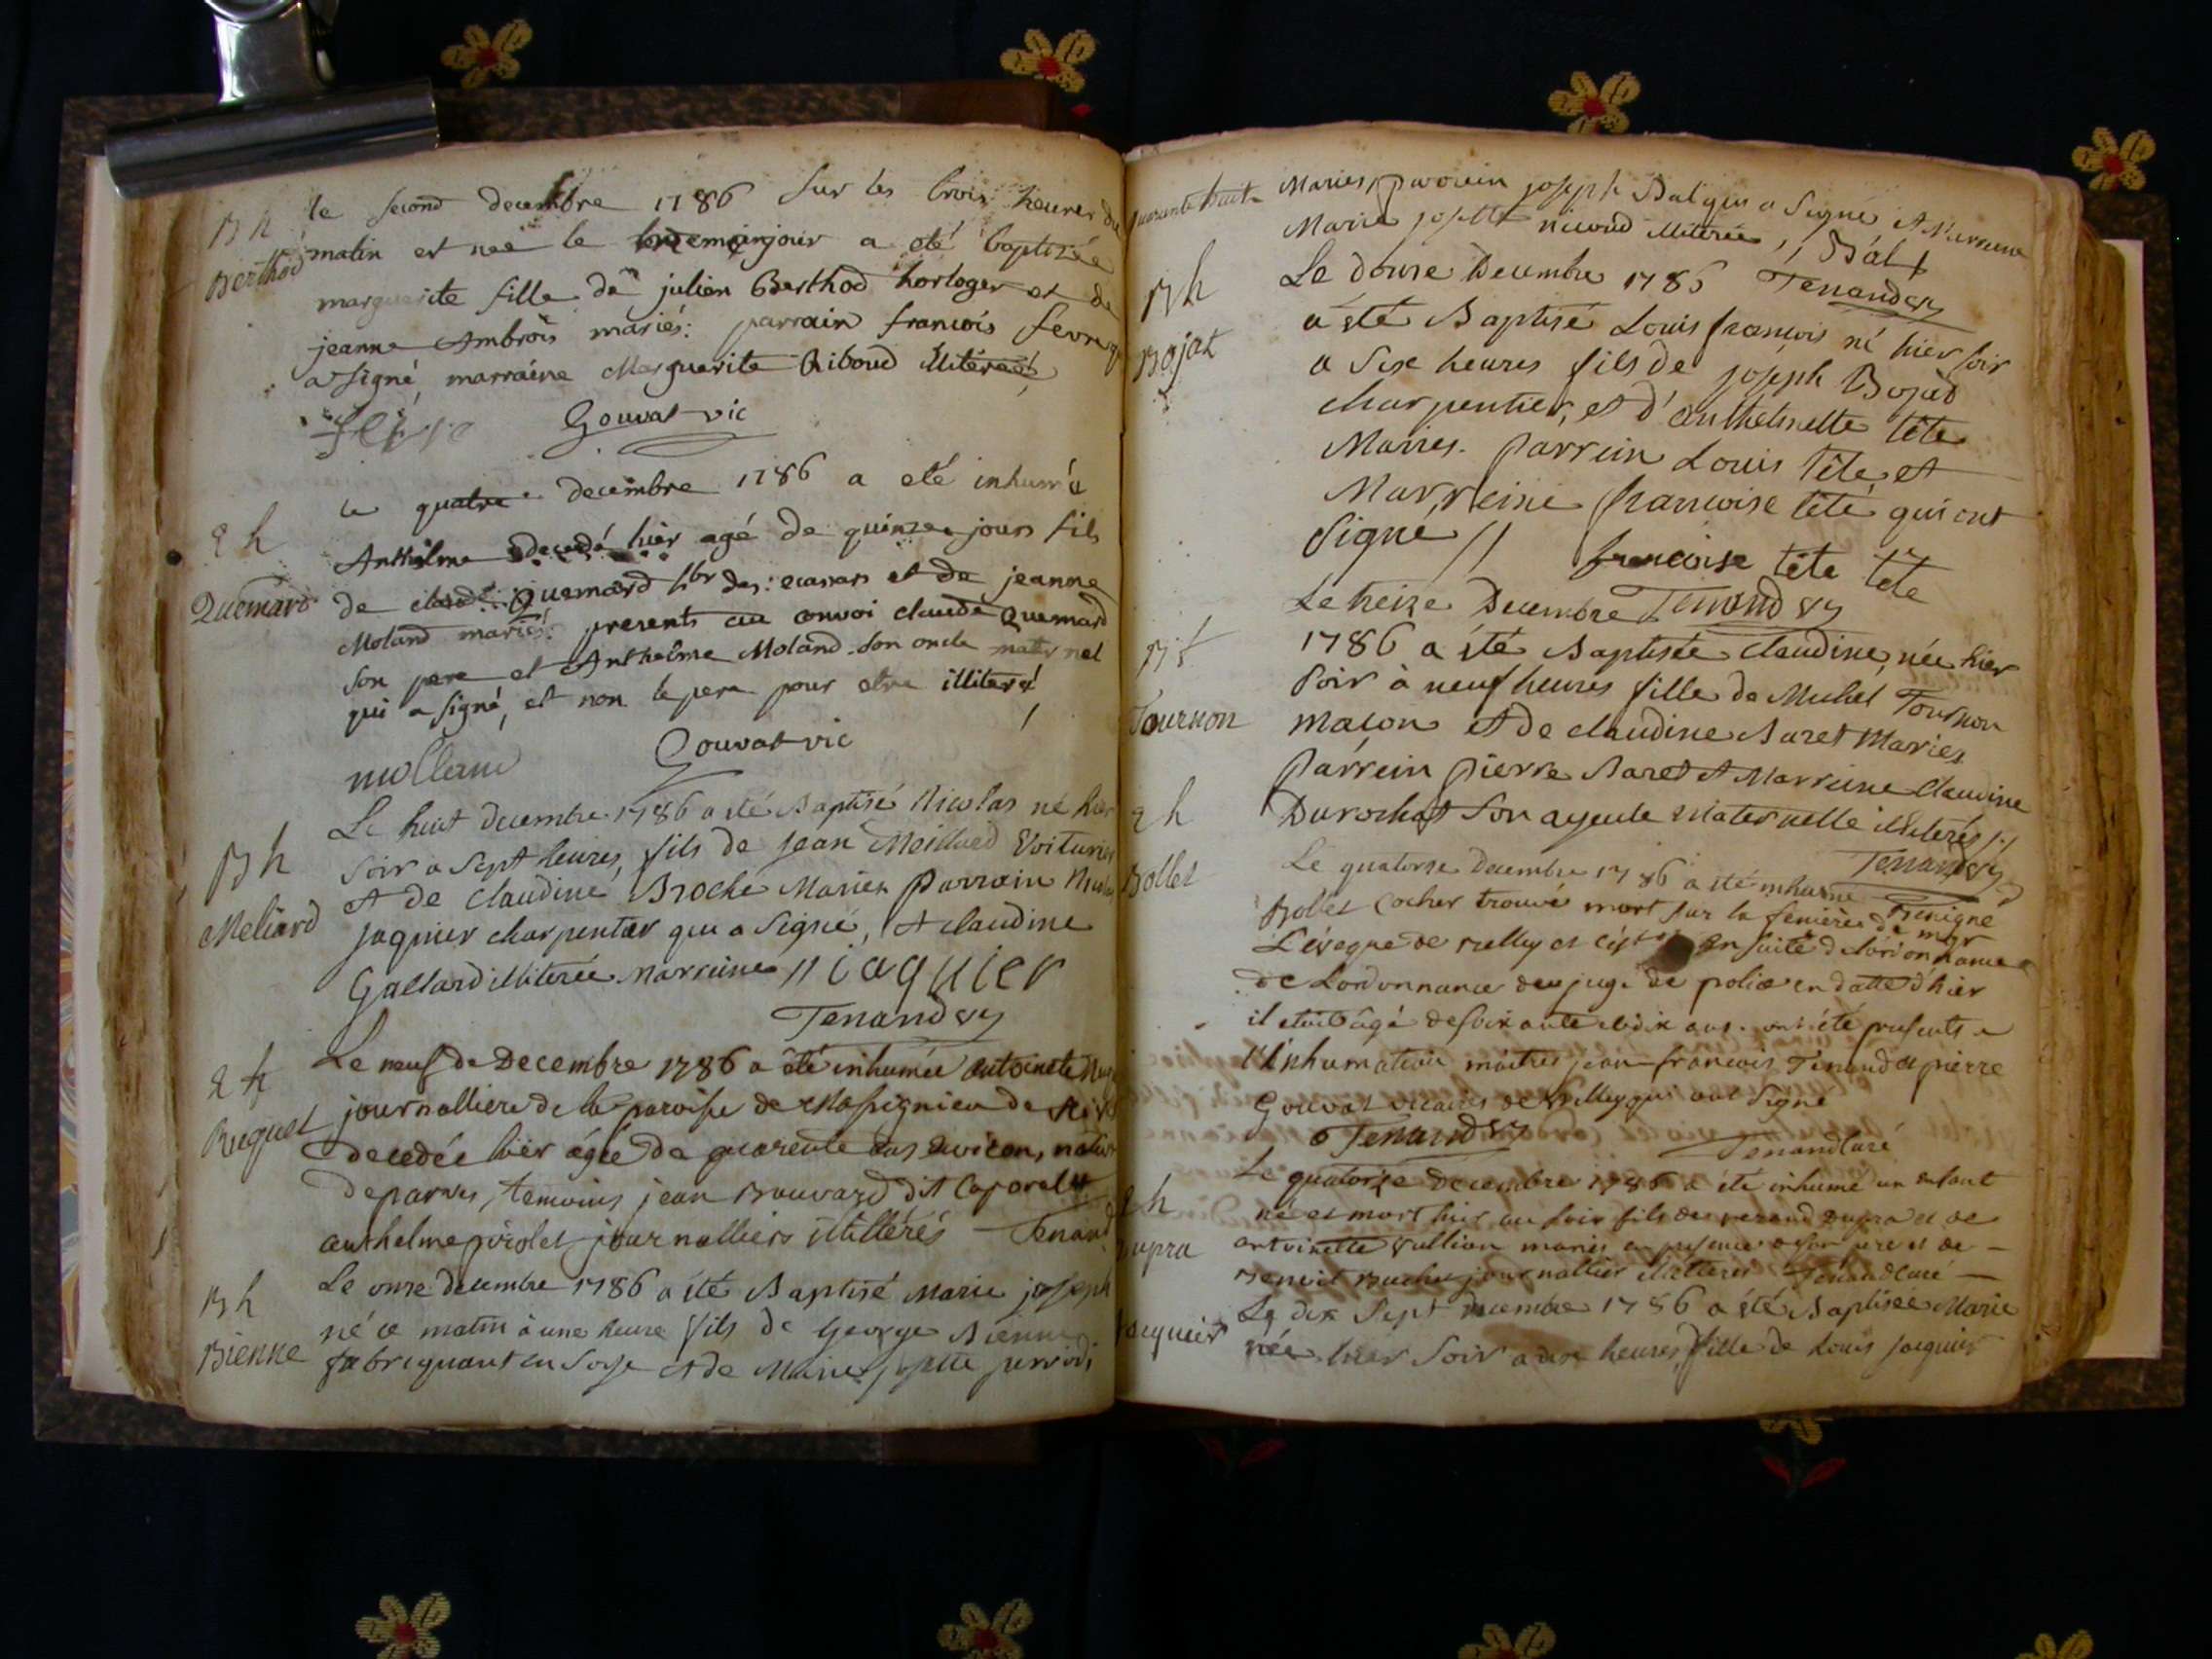 B h
Berthod
le second decembre 1786 sur les trois heures du
matin est née le même jour a eté baptizée
marguerite fille de julien Berthod horloger et de
jeanne Ambrois mariés: parrain francois fevre qui
a signé, marraine Marguerite Riboud illiterée
fevre Gouvat vic
2 h
Quemard
le quatre decembre 1786 a eté inhumé
Anthelme decedé hier agé de quinze jours fils
de claude Quemard des et de jeanne
Moland mariés: presents au convoi claude Quemard
son pere et Anthelme Moland son oncle maternel
qui a signé, et non le pere pour etre illiteré
molland Gouvat vic
B h
Meliard
Le huit decembre 1786 a été Baptisé Nicolas né hier
soir a sept heures, fils de jean Meillard Voiturier
et de Claudine Broche Maries Parrain Nicolas
jaquier charpentier qui a signé, et claudine
Gallard illiterée Marreine // iaquier
Tenand vy
2 h
Buquet
Le neuf de Decembre 1786 a été inhumée antoinete
journalliere de la paroisse de Massignieu de Rives
decedée hier agée de quarente ans environ, native
de parves, temoins jean Bouvard dit Caporal et
anthelme pirolet journalliers illitterés Tenand
B h
Bienne
Le onze decembre 1786 a été Baptisé Marie joseph
né ce matin à une heure fils de George Bienne
fabriquant en soye et de Marie josette
quarante huit
Maries, parrein joseph Bal qui a signé, et Marreine
Marie josette nicoud illiterée, / Bal
Tenand vy
B h
Bojat
Le douze Decembre 1786
a été Baptisé Louis francois né hier soir
a six heures fils de joseph Bojat
charpentier, et d'anthelmette tête
Maries. Parrein Louis tête et
Marreine francoise tête qui ont
signé // francoise tete tete
Tenand vy
B h
Tournon
Le treize Decembre
1786 a été Baptisée claudine, née hier
soir à neuf heures fille de Michel Tournon
macon et de claudine Baret Maries
Parrein pierre Baret et Marreine Claudine
Durochat son ayeule maternelle illiterés //
Tenand vy
2 h
Bollet
Le quatorze decembre 1786 a été inhumé Benigne
Bollet cocher trouvé mort sur la feniere de mgr
L'éveque de Belley et en suite de l'ordonnance
de Lordonnance du juge de police en datte d'hier
il etoit agé de soixante et dix ans. ont été presents a
l'inhumation maitres jean francois Tenand et pierre
Gouvat vicaires de Belley qui ont signé
Tenand vy Tenand curé
2 h
Dupra
Le quatorze decembre 1786 a été inhumé un enfant
né et mort hier au soir fils de dupra et de
antoinette vullion mariés en presence de son pere et de
Benoit journallier illitterés Tenand curé
Jacquier
Le dix Sept decembre 1786 a été Baptisée Marie
née hier soir a dix heures, fille de Louis jacquier